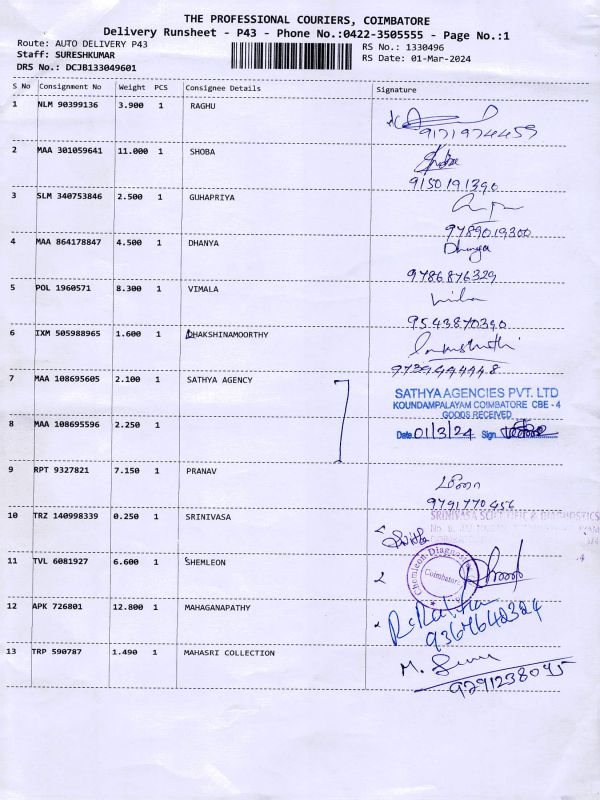 THE PROFESSIONAL COURIERS, COIMBATORE
Delivery Runsheet - P43 - Phone No.:0422-3505555 - Page No.:1
Route: AUTO DELIVERY P43
RS No.: 1330496
Staff: SURESHKUMAR
RS Date: 01-Mar-2024
DRS No.: DCJB133049601
S No Consignment No Weight PCS Consignee Details Signature
1 NLM 90399136 3.900 1 RAGHU
9171974459
2 MAA 301059641 11.000 1 SHOBA
Shoba
9150191390
3 SLM 340753846 2.500 1 GUHAPRIYA
9789019300
4 MAA 864178847 4.500 1 DHANYA
Dhanya
9786876329
5 POL 1960571 8.300 1 VIMALA
9543870390
6 IXM 505988965 1.600 1 DHAKSHINAMOORTHY
7 MAA 108695605 2.100 1 SATHYA AGENCY
SATHYA AGENCIES PVT. LTD
KOUNDAMPALAYAM COIMBATORE CBE - 4
GOODS RECEIVED
8 MAA 108695596 2.250 1
Date 01/3/24 Sign
9 RPT 9327821 7.150 1 PRANAV
9791770456
10 TRZ 140998339 0.250 1 SRINIVASA
SRINIVASA SCIENTIFIC & DIAGNOSTICS
11 TVL 6081927 6.600 1 SHEMLEON
Chemleon-Diagnostics
Coimbatore
12 APK 726801 12.800 1 MAHAGANAPATHY
9367642324
13 TRP 590787 1.490 1 MAHASRI COLLECTION
9291238095